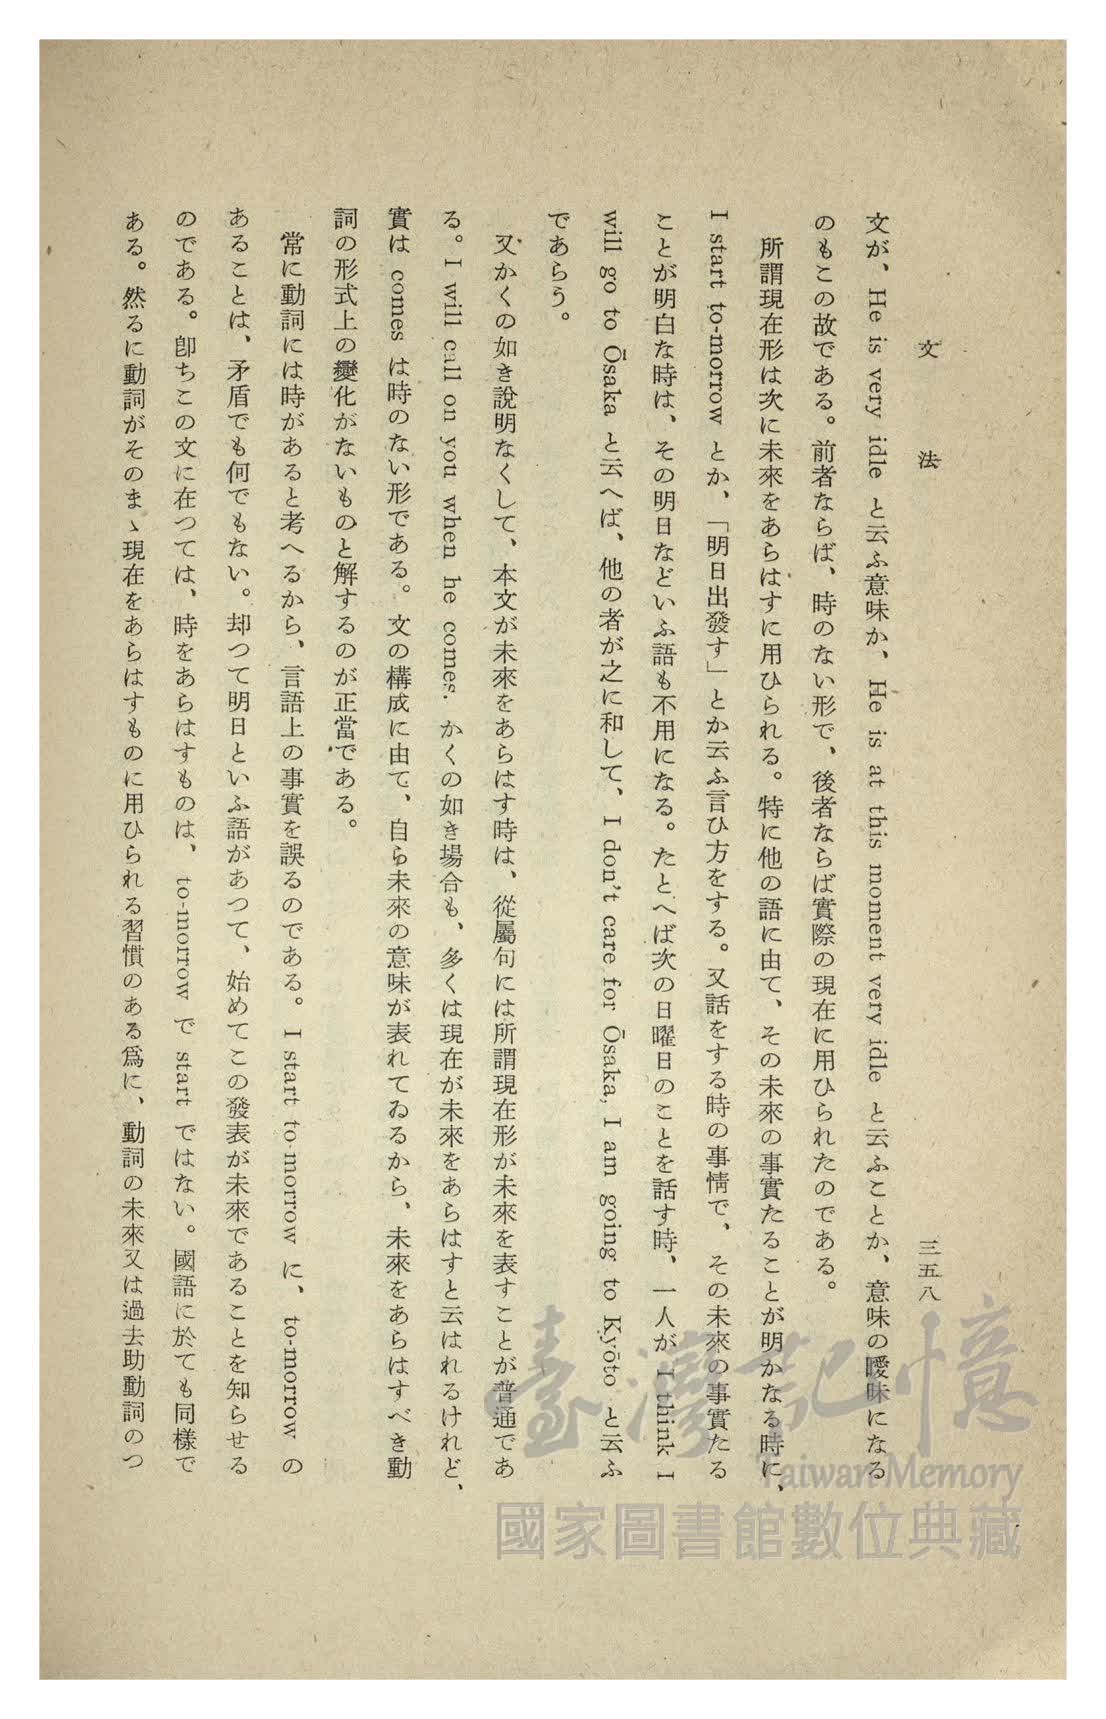 文法
三五八
文が、He is very idle と云ふ意味か、He is at this moment very idle と云ふことか、意味の曖昧になる
のもこの故である。前者ならば、時のない形で、後者ならば實際の現在に用ひられたのである。
所謂現在形は次に未來をあらはすに用ひられる。特に他の語に由て、その未來の事實たることが明かなる時に、
I start to-morrow とか、「明日出發す」とか云ふ言ひ方をする。又話をする時の事情で、その未來の事實たる
ことが明白な時は、その明日などいふ語も不用になる。たとへば次の日曜日のことを話す時、一人が I think I
will go to Ōsaka と云へば、他の者が之に和して、I don't care for Ōsaka, I am going to Kyōto と云ふ
であらう。
又かくの如き說明なくして、本文が未來をあらはす時は、從屬句には所謂現在形が未來を表すことが普通であ
る。I will call on you when he comes. かくの如き場合も、多くは現在が未來をあらはすと云はれるけれど、
實は comes は時のない形である。文の構成に由て、自ら未來の意味が表れてゐるから、未來をあらはすべき動
詞の形式上の變化がないものと解するのが正當である。
常に動詞には時があると考へるから、言語上の事實を誤るのである。I start to-morrow に、to-morrow の
あることは、矛盾でも何でもない。却つて明日といふ語があつて、始めてこの發表が未來であることを知らせる
のである。卽ちこの文に在つては、時をあらはすものは、to-morrow で start ではない。國語に於ても同樣で
ある。然るに動詞がそのまゝ現在をあらはすものに用ひられる習慣のある爲に、動詞の未來又は過去助動詞のつ
臺灣記憶
Taiwan Memory
國家圖書館數位典藏